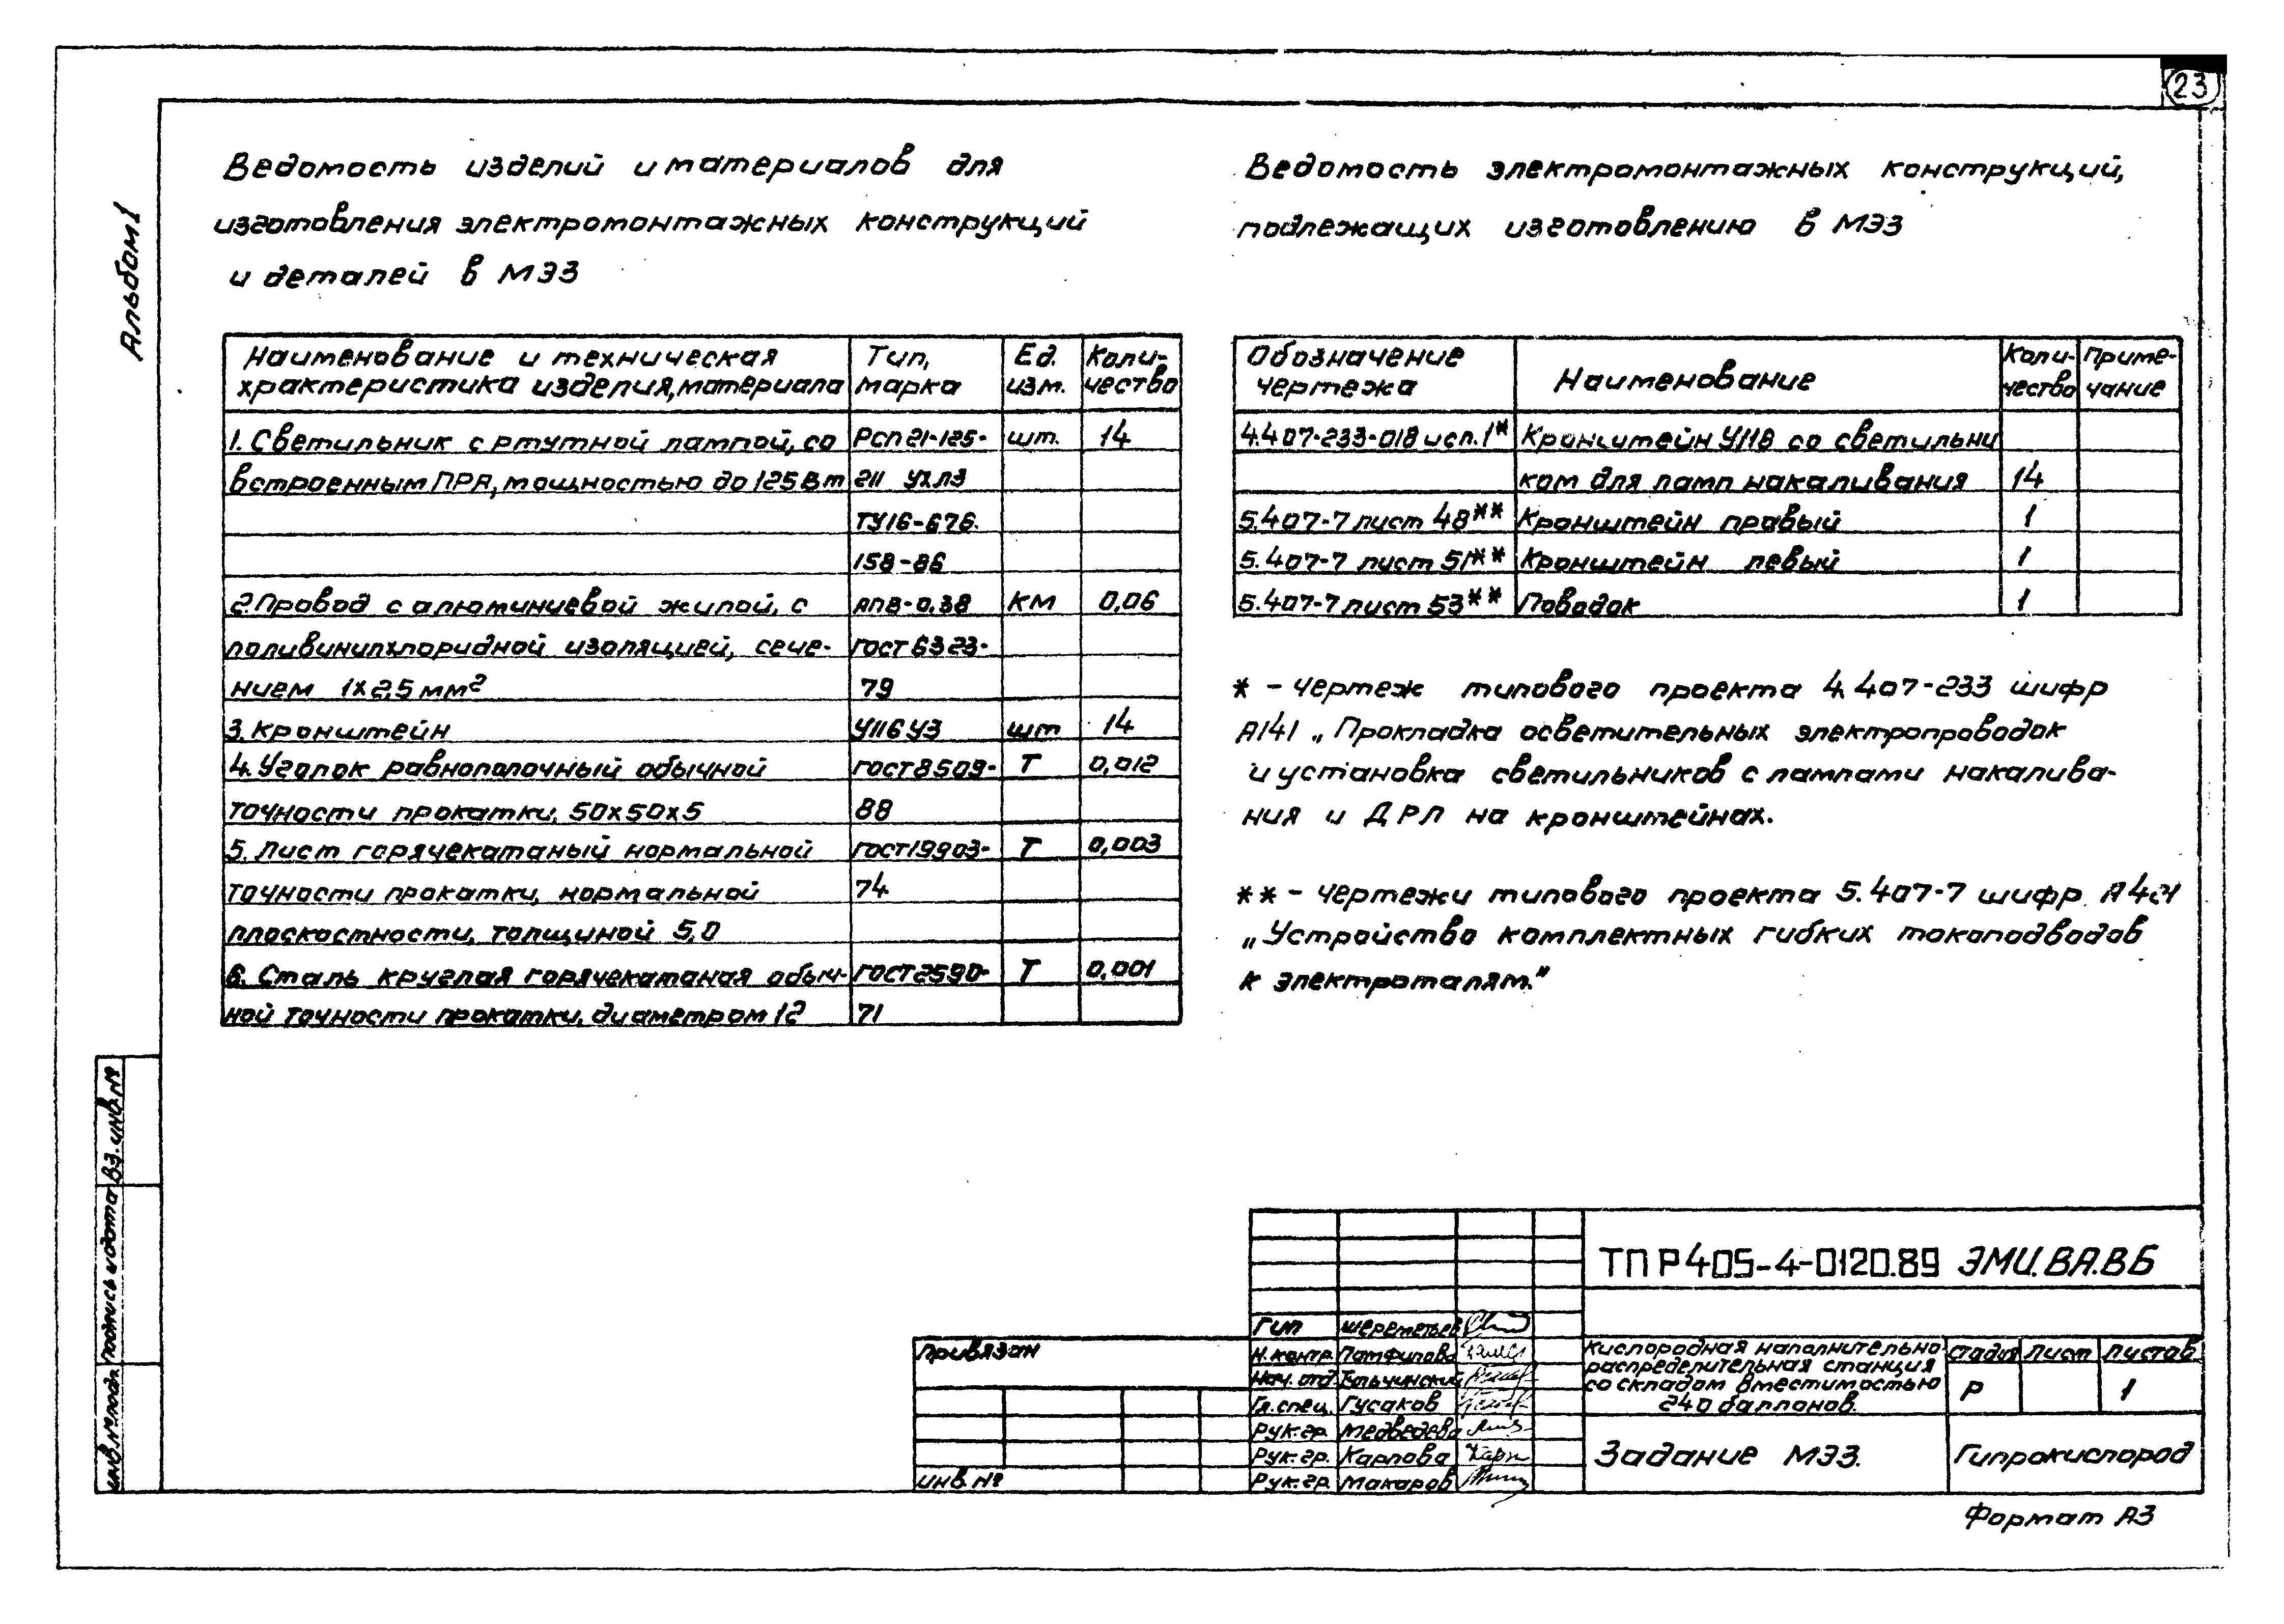 23
Альбом 1
Ведомость изделий и материалов для
изготовления электромонтажных конструкций
и деталей в МЭЗ
Наименование и техническая характеристика изделия, материала | Тип, марка | Ед. изм. | Коли-чество
1. Светильник с ртутной лампой, со | РСП21-125- | шт. | 14
встроенным ПРА, мощностью до 125 Вт | 211 УХЛ3
ТУ16-676.
158-86
2. Провод с алюминиевой жилой, с | АПВ-0,38 | км | 0,06
поливинилхлоридной изоляцией, сече- | ГОСТ 6323-
нием 1х2,5 мм² | 79
3. Кронштейн | У116У3 | шт | 14
4. Уголок равнополочный обычной | ГОСТ 8509- | Т | 0,012
точности прокатки, 50х50х5 | 88
5. Лист горячекатаный нормальной | ГОСТ19903- | Т | 0,003
точности прокатки, нормальной | 74
плоскостности, толщиной 5,0
6. Сталь круглая горячекатаная обыч- | ГОСТ2590- | Т | 0,001
ной точности прокатки, диаметром 12 | 71
Ведомость электромонтажных конструкций,
подлежащих изготовлению в МЭЗ
Обозначение чертежа | Наименование | Коли-чество | Приме-чание
4.407-233-018 исп.1* | Кронштейн У118 со светильни
ком для ламп накаливания | 14
5.407-7 лист 48** | Кронштейн правый | 1
5.407-7 лист 51** | Кронштейн левый | 1
5.407-7 лист 53** | Поводок | 1
* - чертеж типового проекта 4.407-233 шифр
А141 „Прокладка осветительных электропроводок
и установка светильников с лампами накалива-
ния и ДРЛ на кронштейнах.
** - чертежи типового проекта 5.407-7 шифр
„Устройство комплектных гибких токоподводов
к электроталям."
Вз. инв. №
Подпись и дата
Инв. № подл.
Привязан
Инв. №
ТП Р 405-4-0120.89 ЭМИ.ВА.ВБ
ГИП | Шереметьев
Н. контр. | Памфилова
Нач. отд. | Тульчинский
Гл. спец. | Гусаков
Рук. гр. | Медведева
Рук. гр. | Карпова
Рук. гр. | Макаров
Кислородная наполнительно-
распределительная станция
со складом вместимостью
240 баллонов.
Стадия | Лист | Листов
Р | 1
Задание МЭЗ.
Гипрокислород
Формат А3